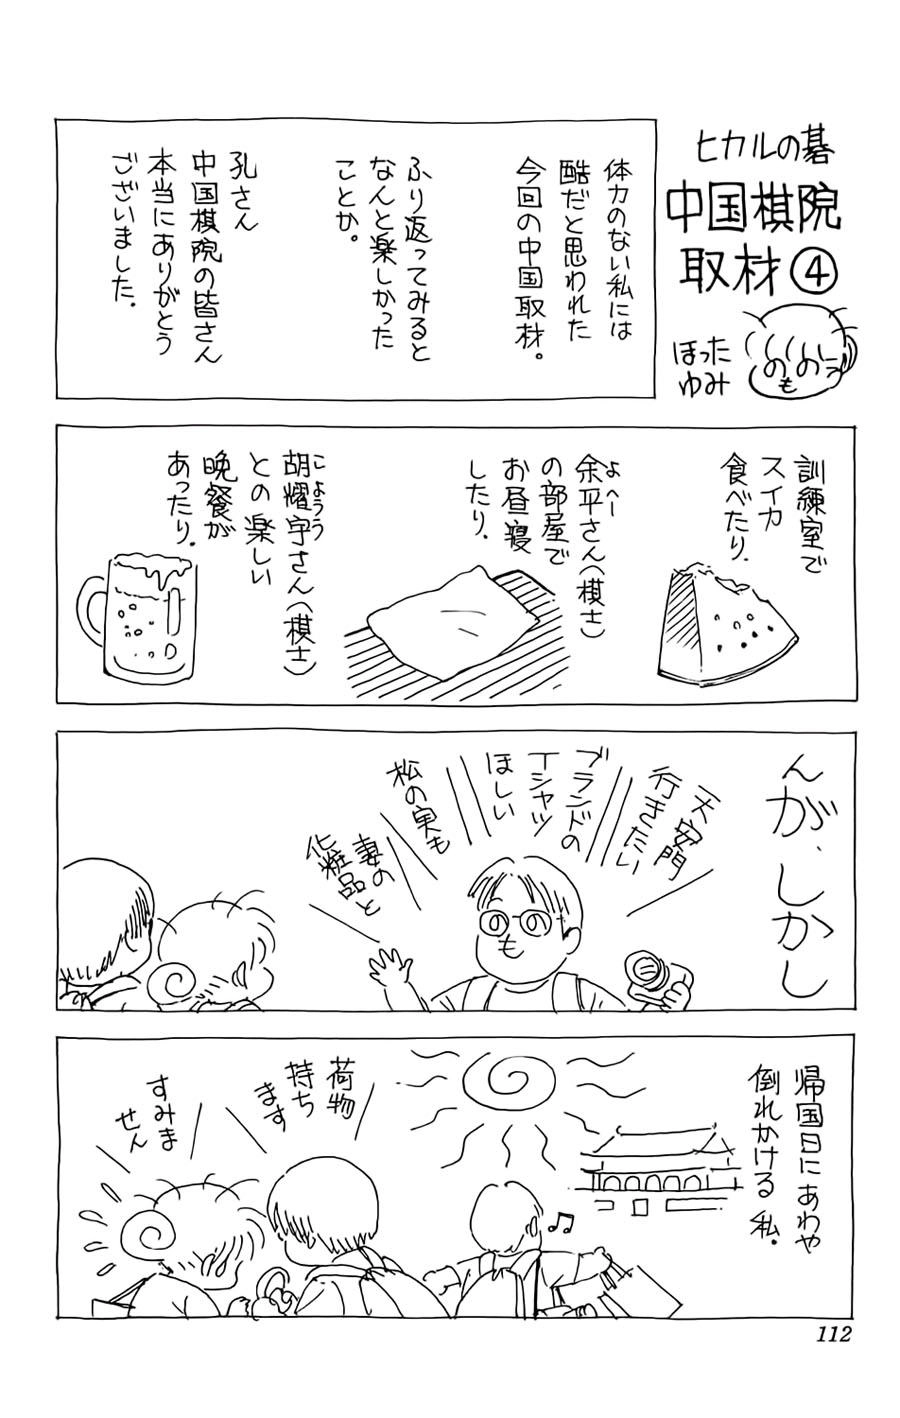 ヒカルの碁
中国棋院
取材④
ほった
ゆみ
体力のない私には
酷だと思われた
今回の中国取材。
ふり返ってみると
なんと楽しかった
ことか。
孔さん
中国棋院の皆さん
本当にありがとう
ございました.
訓練室で
スイカ
食べたり.
余平さん(棋士)
よへー
の部屋で
お昼寝
したり.
胡耀宇さん(棋士)
こようう
との楽しい
晩餐が
あったり.
んが、しかし
天安門
行きたい
ブランドの
Tシャツ
ほしい
松の実も
妻の
化粧品と
帰国日にあわや
倒れかける私.
荷物
持ち
ます
すみま
せん
112